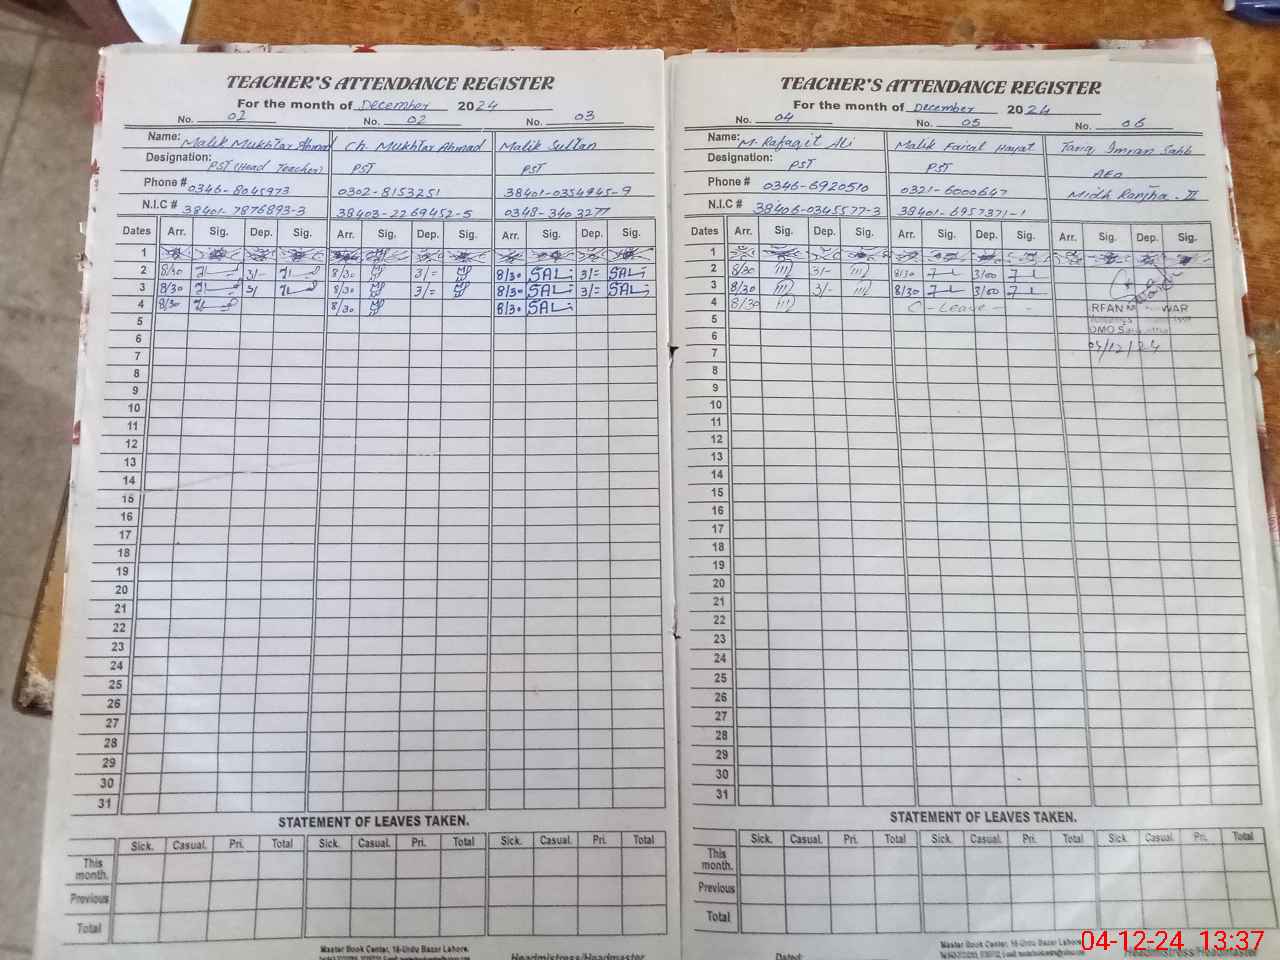 TEACHER'S ATTENDANCE REGISTER
For the month of December 2024
No. 01 No. 02 No. 03
Name: Malik Mukhtar Ahmad Ch. Mukhtar Ahmad Malik Sultan
Designation: PST (Head Teacher) PST PST
Phone # 0346-8045973 0302-8153251 38401-0354945-9
N.I.C # 38401-7876893-3 38403-2269452-5 0348-3403277
Dates Arr. Sig. Dep. Sig. Arr. Sig. Dep. Sig. Arr. Sig. Dep. Sig.
1
2 8/30 3/- 8/30 3/= 8/30 SAL 3/= SAL
3 8/30 3/ 8/30 3/= 8/30 SAL 3/= SAL
4 8/30 8/30 8/30 SAL
5
6
7
8
9
10
11
12
13
14
15
16
17
18
19
20
21
22
23
24
25
26
27
28
29
30
31
STATEMENT OF LEAVES TAKEN.
Sick. Casual. Pri. Total Sick. Casual. Pri. Total Sick. Casual. Pri. Total
This month.
Previous
Total
Master Book Center, 16-Urdu Bazar Lahore.
Headmistress/Headmaster
TEACHER'S ATTENDANCE REGISTER
For the month of December 2024
No. 04 No. 05 No. 06
Name: M. Rafaqit Ali Malik Faisal Hayat Tariq Imran Sahb
Designation: PST PST AEO
Phone # 0346-6920510 0321-6000647 Midh Ranjha-II
N.I.C # 38406-0345577-3 38401-6957371-1
Dates Arr. Sig. Dep. Sig. Arr. Sig. Dep. Sig. Arr. Sig. Dep. Sig.
1
2 8/30 3/- 8/30 3/00
3 8/30 3/- 8/30 3/00
4 8/30 C-Leave - - RFAN WAR
5
6 DMO
7 04/12/24
8
9
10
11
12
13
14
15
16
17
18
19
20
21
22
23
24
25
26
27
28
29
30
31
STATEMENT OF LEAVES TAKEN.
Sick. Casual. Pri. Total Sick. Casual. Pri. Total Sick. Casual. Pri. Total
This month.
Previous
Total
Master Book Center, 16-Urdu Bazar Lahore.
Dated: Headmistress/Headmaster
04-12-24 13:37